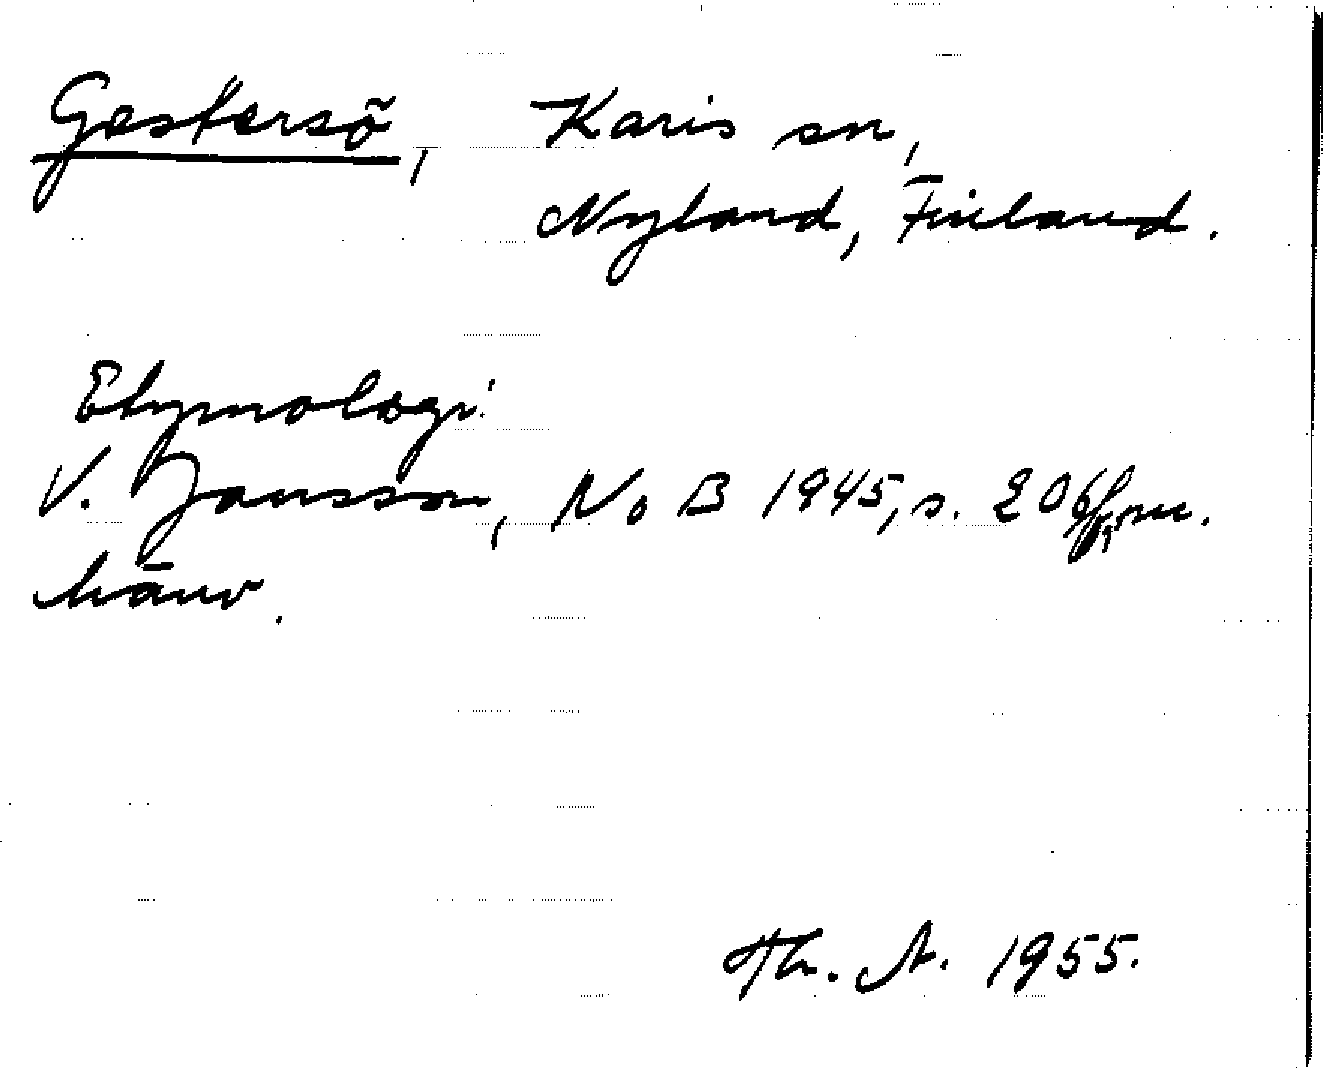 Gestersö, Karis sn,
Nyland, Finland.
Etymologi:
V. Jansson, NoB 1945, s. 206 ff, m.
hänv.
Th. A. 1955.